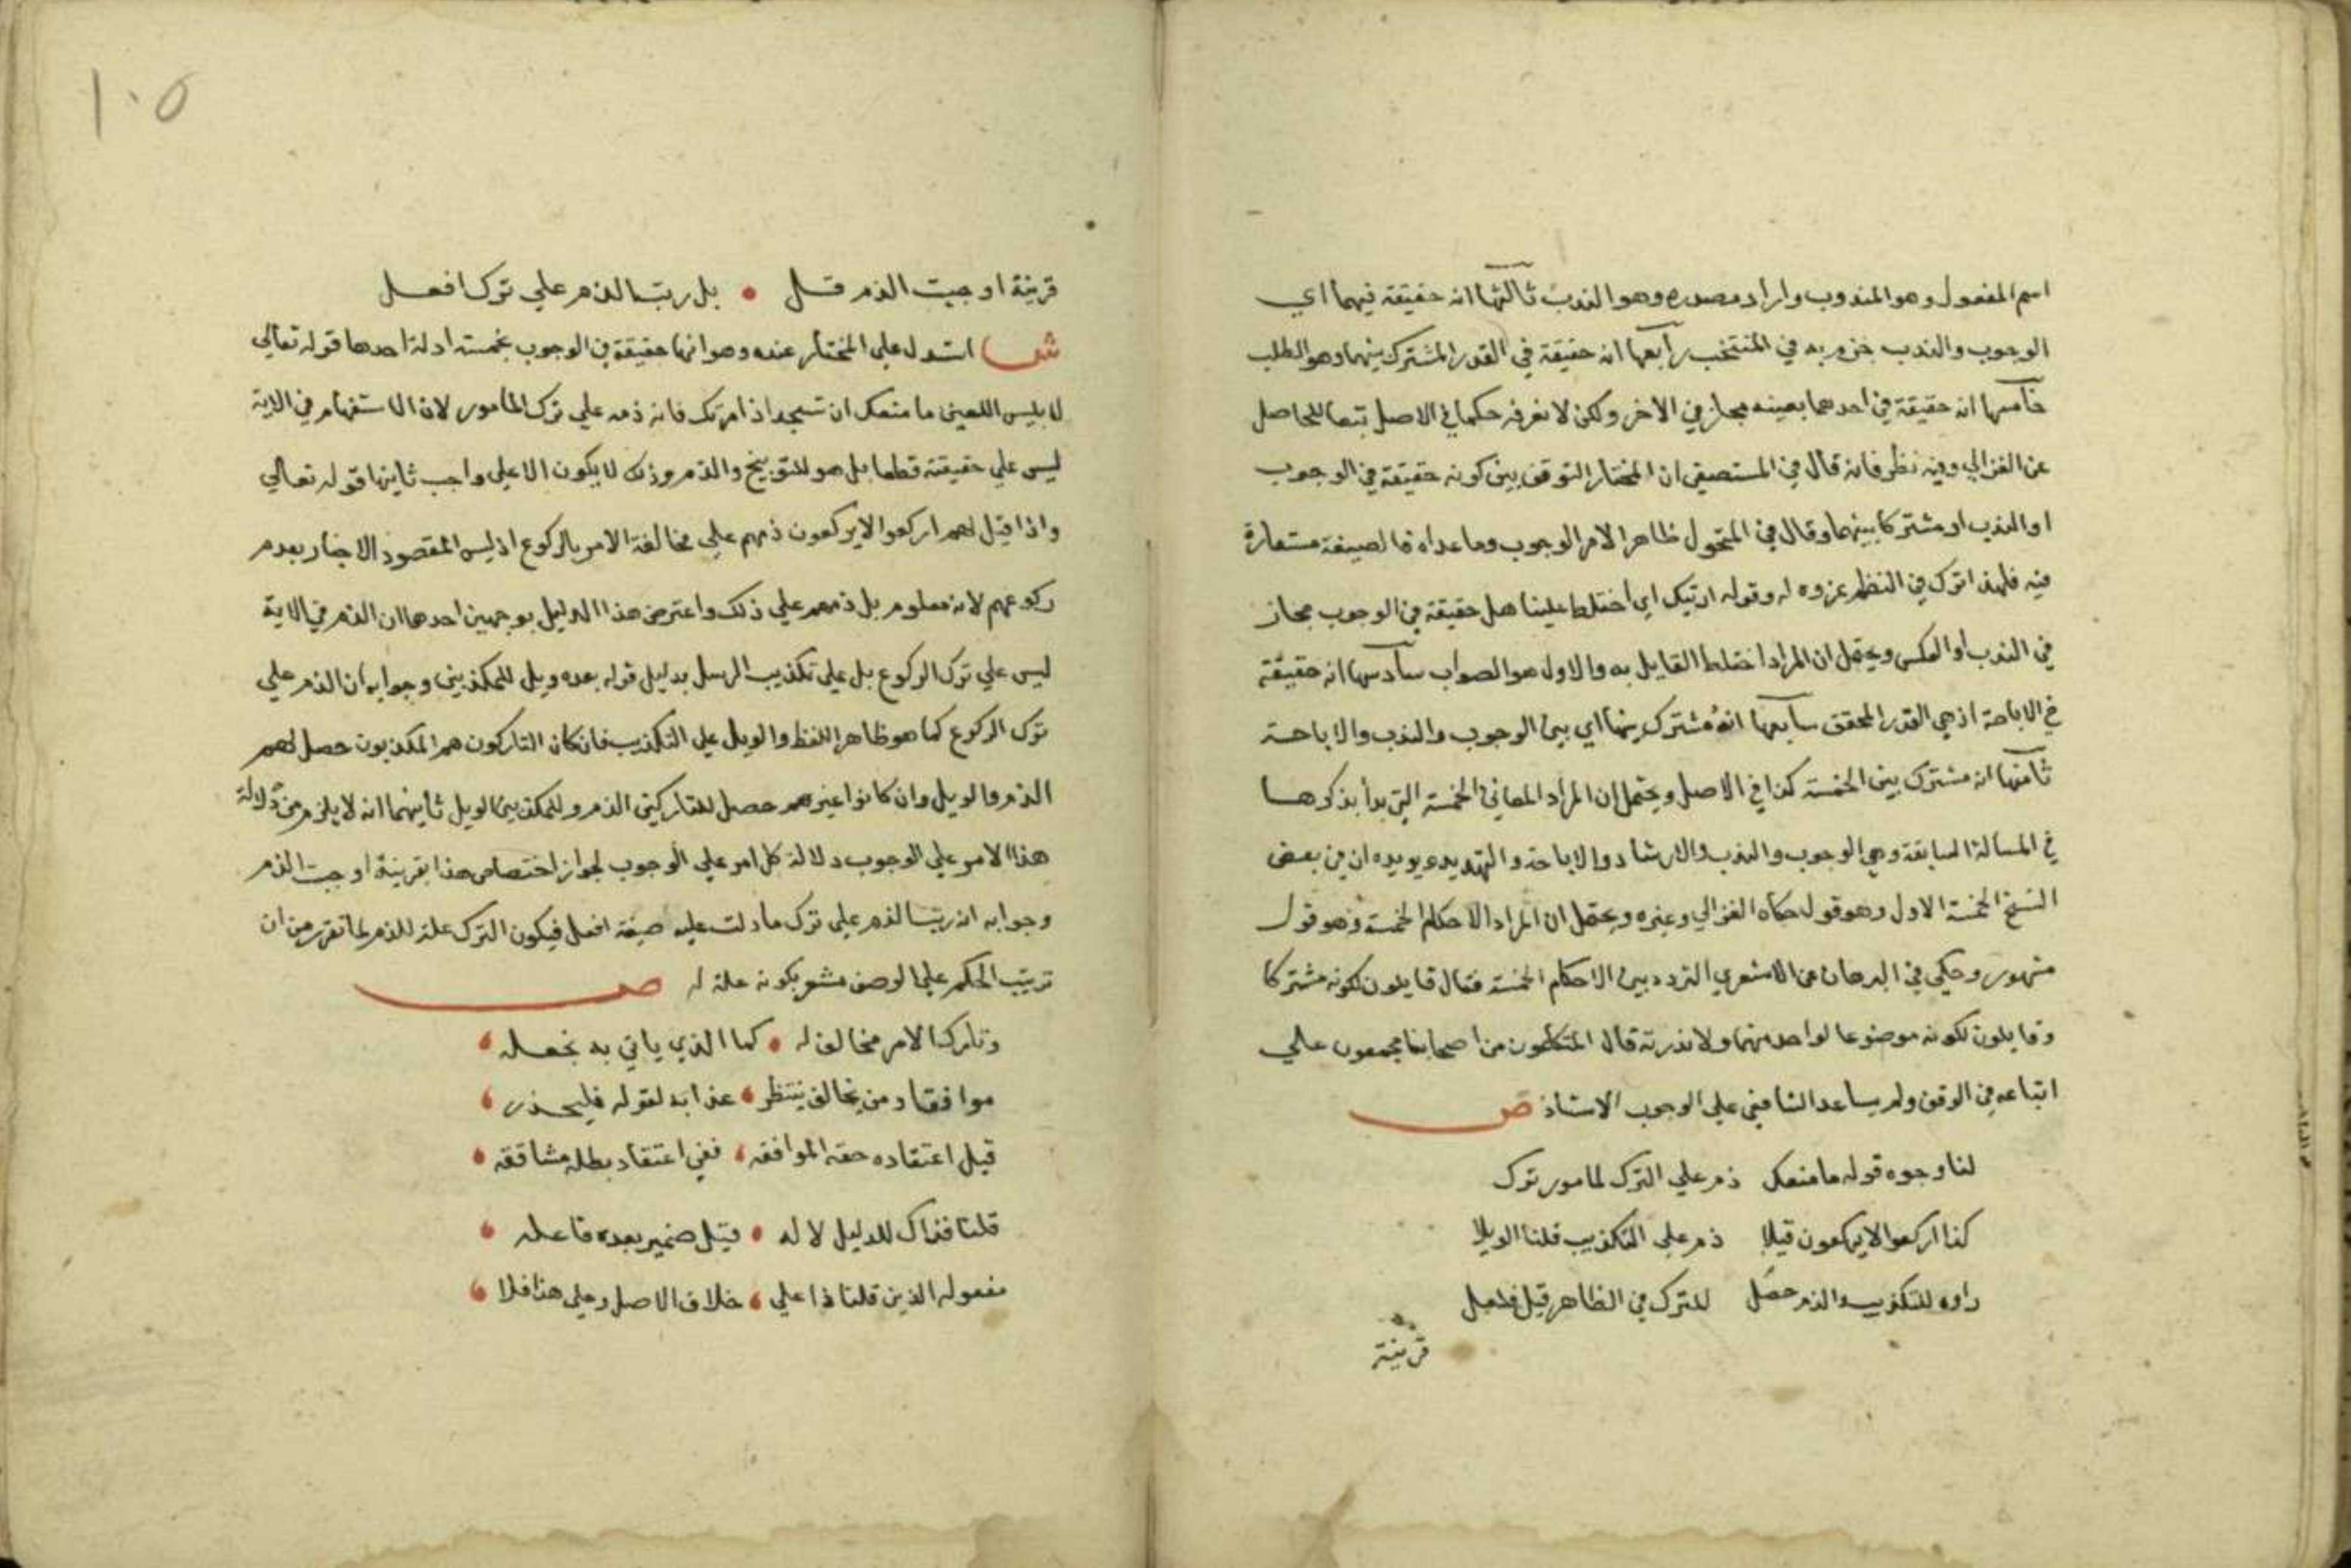 اسم المفعول وهو المندوب واراد مصدره وهو الندب ثالثها انه حقيقة فيهما اي
الوجوب والندب جزم به في المنتخب رابعها انه حقيقة في القدر المشترك بينهما وهو الطلب
خامسها انه حقيقة في احدهما بعينه مجاز في الاخر ولكن لا نعرفه حكما في الاصل تبعا للحاصل
عن الغزالي وفيه نظر فانه قال في المستصفى ان المختار التوقف بين كونه حقيقة في الوجوب
او الندب او مشتركا بينهما وقال في المنخول ظاهر الامر الوجوب وما عداه فالصيغة مستعارة
فيه فلهذا ترك في النظم عزوه له وقوله ارتبك اي اختلط علينا هل حقيقة في الوجوب مجاز
في الندب او العكس ويحتمل ان المراد اختلط القايل به والاول هو الصواب سادسها انه حقيقة
في الاباحة اذ هي القدر المحقق سابعها انه مشترك بينها اي بين الوجوب والندب والاباحة
ثامنها انه مشترك بين الخمسة كذا في الاصل ويحتمل ان المراد المعاني الخمسة التي بدأ بذكرها
في المسالة السابقة وهي الوجوب والندب والارشاد والاباحة والتهديد ويويده ان في بعض
النسخ الخمسة الاول وهو قول حكاه الغزالي وغيره ويحتمل ان المراد الاحكام الخمسة وهو قول
مشهور وحكي في البرهان عن الاشعري التردد بين الاحكام الخمسة فقال قايلون لكونه مشتركا
وقايلون لكونه موضوعا لواحد منهما ولا ندريه قال المتكلمون من اصحابنا مجمعون علي
اتباعه في الوقف ولم يساعد الشافعي علي الوجوب الا استاذ ص
لنا وجوه قوله ما منعك ذم علي الترك لمامور ترك
كذا اركعوا لا يركعون قيلا ذم علي التكذيب قلنا الويلا
راوه للتكذيب والذم حصل للترك في الظاهر قيل فلعل
قرينة
١٠٥
قرينة اوجبت الذم قل بل رتب الذم علي ترك افعل
ش استدل علي المختار عنده وهو انها حقيقة في الوجوب بخمسة ادلة احدها قوله تعالي
لابليس اللعين ما منعك ان تسجد اذ امرتك فانه ذمه علي ترك المامور لان الاستفهام في الاية
ليس علي حقيقته قطعا بل هو للتوبيخ والذم وذلك لا يكون الا علي واجب ثانيها قوله تعالي
واذا قيل لهم اركعوا لا يركعون ذمهم علي مخالفة الامر بالركوع اذ ليس المقصود الاخبار بعدم
ركوعهم لانه معلوم بل ذمهم علي ذلك واعترض هذا الدليل بوجهين احدهما ان الذم في الاية
ليس علي ترك الركوع بل علي تكذيب الرسل بدليل قوله بعده ويل للمكذبين وجوابه ان الذم علي
ترك الركوع كما هو ظاهر اللفظ والويل علي التكذيب فان كان التاركون هم المكذبون حصل لهم
الذم والويل وان كانوا غيرهم حصل للتاركين الذم وللمكذبين الويل ثانيهما انه لا يلزم من دلالة
هذا الامر علي الوجوب دلالة كل امر علي الوجوب لجواز اختصاص هذا بقرينة اوجبت الذم
وجوابه انه رتب الذم علي ترك ما دلت عليه صيغة افعل فيكون الترك علة للذم لما تقرر من ان
ترتيب الحكم علي الوصف مشعر بكونه علة له ص
وتارك الامر مخالف له كما الذي ياتي به نجعله
موافقا ومن يخالف ينتظر عذابه لقوله فليحذر
قيل اعتقاده حقه الموافقه ففي اعتقاد بطله مشاققه
قلنا فذاك للدليل لا له قيل ضمير بعده فاعله
مفعوله الذين قلنا ذا علي خلاف الاصل وعلي هذا فلا